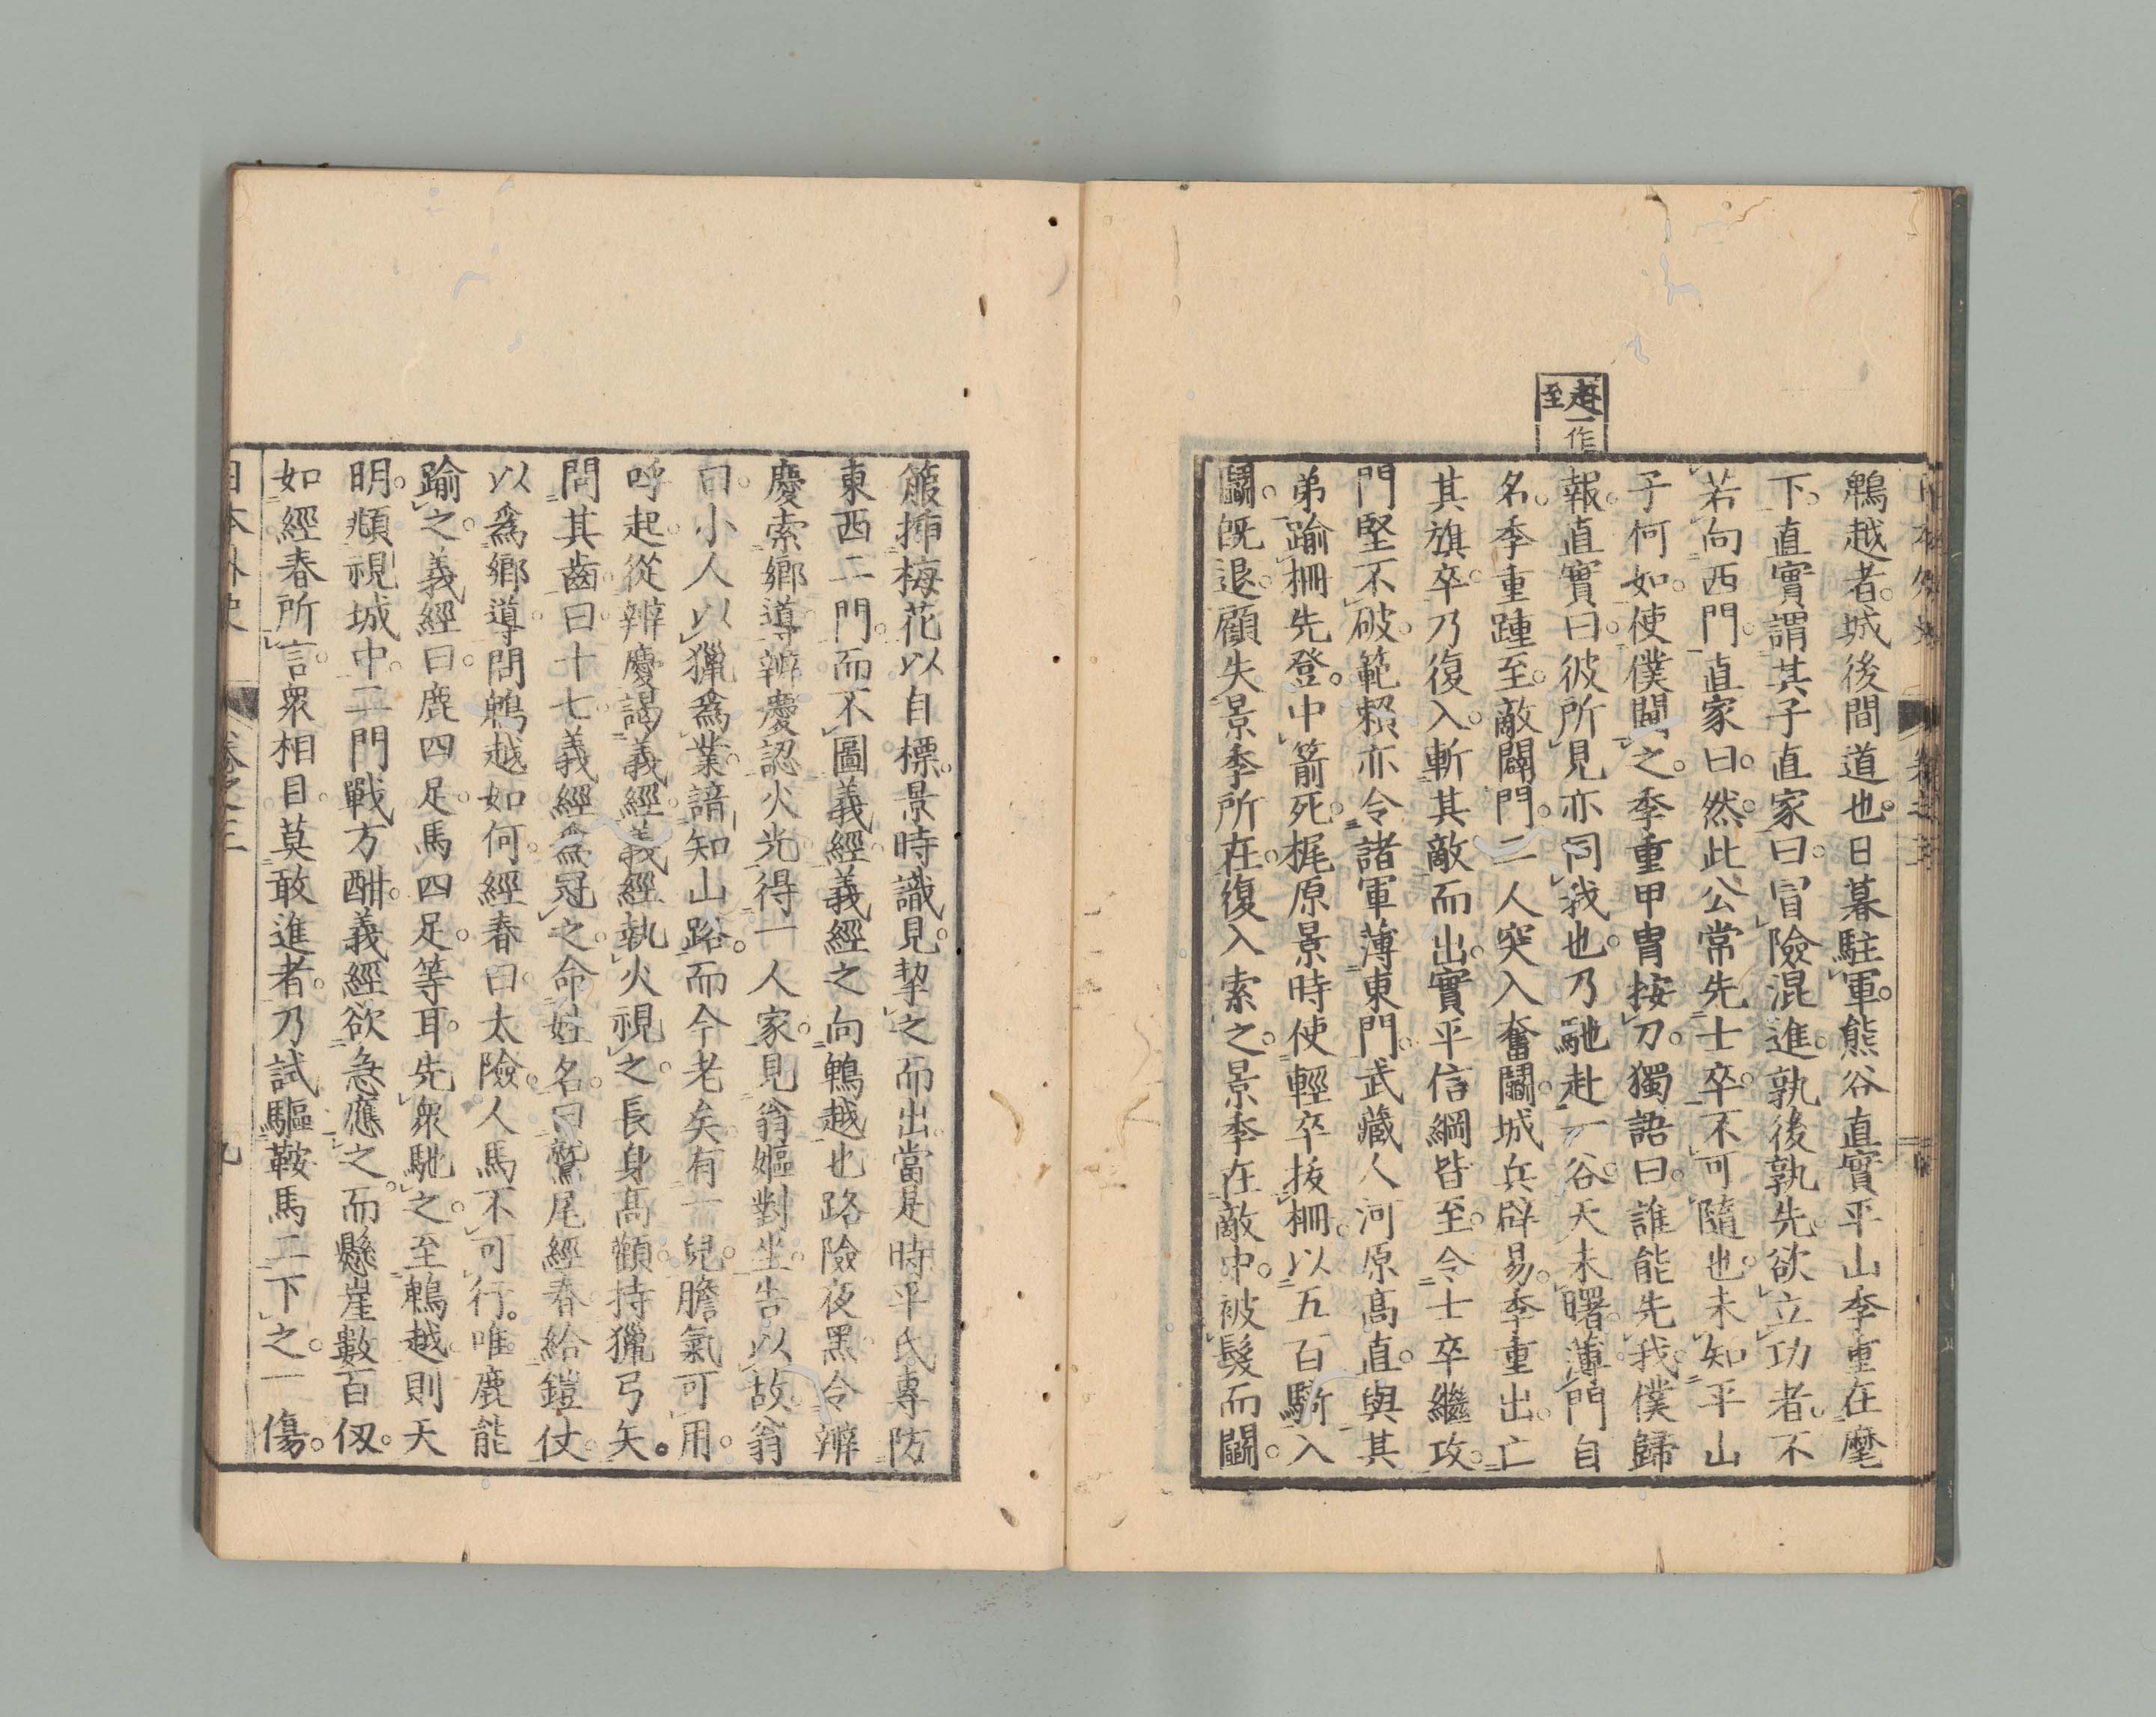 赴一作
至
鵯越者。城後間道也。日暮駐軍。熊谷直實平山季重在麾
下。直實謂其子直家曰。冒險混進。孰後孰先。欲立功者。不
若向西門。直家曰。然。此公常先士卒。不可隨也。未知平山
子何如。使僕闚之。季重甲冑按刀。獨語曰。誰能先我。僕歸
報。直實曰。彼所見亦同我也。乃馳赴一谷。天未曙。薄門自
名。季重踵至。敵闢門。二人突入奮鬭。城兵辟易。季重出。亡
其旗卒。乃復入。斬其敵而出。實平信綱皆至。令士卒繼攻。
門堅不破。範賴亦令諸軍薄東門。武藏人河原高直。與其
弟踰柵先登。中箭死。梶原景時使輕卒拔柵。以五百騎入
鬭。既退。顧失景季所在。復入索之。景季在敵中。被髮而鬭。
箙挿梅花以自標。景時識見。挈之而出。當是時平氏專防
東西二門。而不圖義經。義經之向鵯越也。路險夜黑。令辨
慶索鄉導。辨慶認火光。得一人家。見翁嫗對坐。告以故。翁
曰。小人以獵爲業。諳知山路。而今老矣。有一兒。膽氣可用。
呼起。從辨慶謁義經。義經執火視之。長身高顴。持獵弓矢。
問其齒。曰十七。義經爲冠之。命姓名。曰鷲尾經春。給鎧仗。
以爲鄉導。問鵯越如何。經春曰。太險。人馬不可行。唯鹿能
踰之。義經曰。鹿四足。馬四足。等耳。先衆馳之。至鵯越。則天
明。頫視城中。二門戰方酣。義經欲急應之。而懸崖數百仭。
如經春所言。衆相目。莫敢進者。乃試驅鞍馬二下之。一傷。
日本外史 卷之三 九